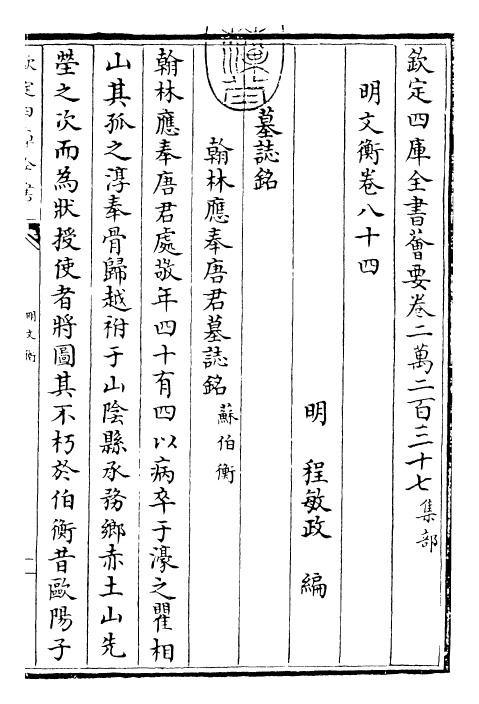 欽定四庫全書薈要卷二萬二百三十七 集部
明文衡卷八十四
明 程敏政 編
墓誌銘
翰林應奉唐君墓誌銘 蘇伯衡
翰林應奉唐君處敬年四十有四以病卒于濠之瞿相
山其孤之淳奉骨歸越祔于山陰縣承務鄉赤土山先
塋之次而為狀授使者將圖其不朽於伯衡昔歐陽子
欽定四庫全書
明文衡
一